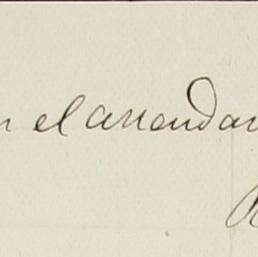 n el arrendar